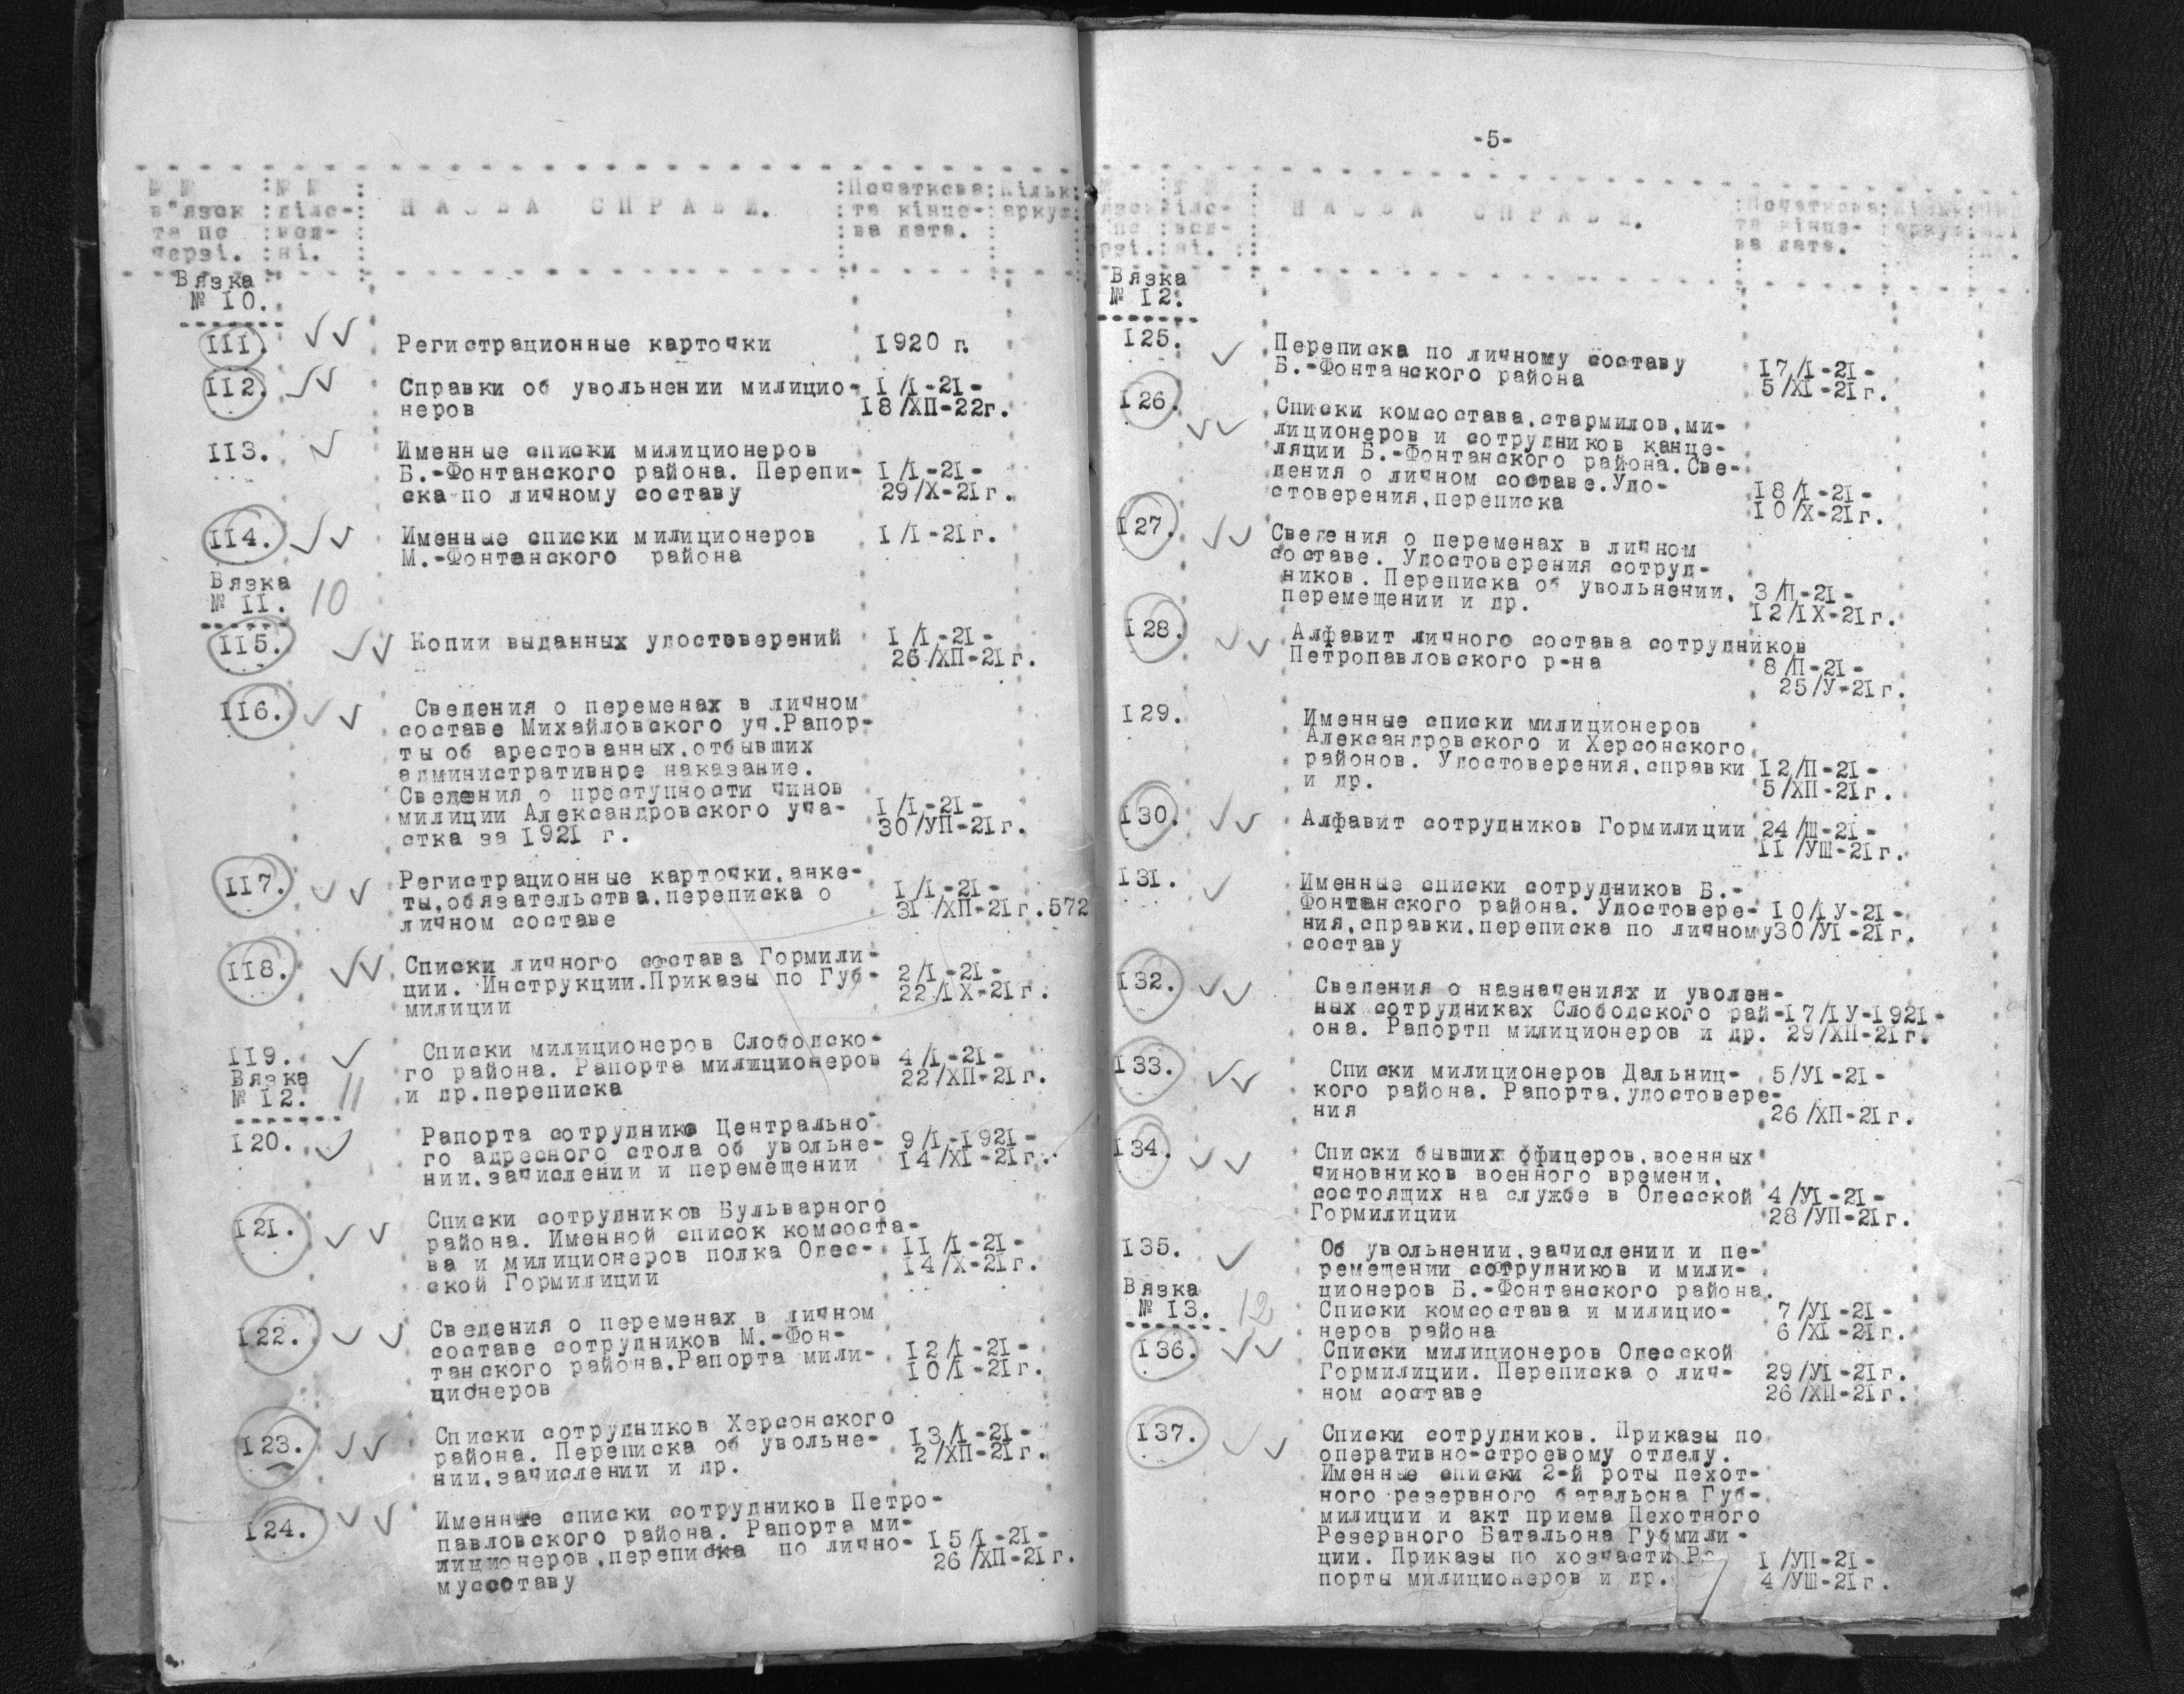 № №
в"язок
та по
черзі.
№ №
діло-
вод-
ні.
НАЗВА СПРАВИ.
Початкова
та кінце-
ва дата.
Кільк.
аркуш.
Вязка
№ 10.
111.
Регистрационные карточки
1920 г.
112.
Справки об увольнении милицио-
неров
1/1-21-
18/ХП-22г.
113.
Именные списки милиционеров
Б.-Фонтанского района. Перепи-
ска по личному составу
1/1-21-
29/Х-21г.
114.
Именные списки милиционеров
М.-Фонтанского района
1/1-21г.
Вязка
№ 11. 10
115.
Копии выданных удостоверений
1/1-21-
26/ХП-21г.
116.
Сведения о переменах в личном
составе Михайловского уч.Рапор-
ты об арестованных,отбывших
административнре наказание.
Сведения о преступности чинов
милиции Александровского уча-
стка за 1921 г.
1/1-21-
30/УП-21г.
117.
Регистрационные карточки,анке-
ты,обязательства,переписка о
личном составе
1/1-21-
31/ХП-21г.572
118.
Списки личного состава Гормили-
ции. Инструкции.Приказы по Губ-
милиции
2/1-21-
22/1Х-21г.
119.
Списки милиционеров Слободско-
го района. Рапорта милиционеров
и др.переписка
4/1-21-
22/ХП-21г.
Вязка
№ 12. 11
120.
Рапорта сотрудника Центрально-
го адресного стола об увольне-
нии,зачислении и перемещении
9/1-1921-
14/Х1-21г.
121.
Списки сотрудников Бульварного
района. Именной список комсоста-
ва и милиционеров полка Одес-
ской Гормилиции
11/1-21-
14/Х-21г.
122.
Сведения о переменах в личном
составе сотрудников М.-Фон-
танского района.Рапорта мили-
ционеров
12/1-21-
10/1-21г.
123.
Списки сотрудников Херсонского
района. Переписка об увольне-
нии,зачислении и др.
13/1-21-
2/ХП-21г.
124.
Именные списки сотрудников Петро-
павловского района. Рапорта ми-
лиционеров,переписка по лично-
муссотаву
15/1-21-
26/ХП-21г.
-5-
НАЗВА СПРАВИ.
Початкова
та кінце-
ва дата.
Вязка
№ 12.
125.
Переписка по личному составу
Б.-Фонтанского района
17/1-21-
5/Х1-21г.
126.
Списки комсостава,стармилов,ми-
лиционеров и сотрудников канце-
ляции Б.-Фонтанского района.Све-
дения о личном составе.Удо-
стоверения,переписка
18/1-21-
10/Х-21г.
127.
Сведения о переменах в личном
составе. Удостоверения сотруд-
ников. Переписка об увольнении,
перемещении и др.
3/П-21-
12/1Х-21г.
128.
Алфавит личного состава сотрудников
Петропавловского р-на
8/П-21-
25/У-21г.
129.
Именные списки милиционеров
Александровского и Херсонского
районов. Удостоверения,справки
и др.
12/П-21-
5/ХП-21г.
130.
Алфавит сотрудников Гормилиции
24/Ш-21-
11/УШ-21г.
131.
Именные списки сотрудников Б.-
Фонтанского района. Удостовере-
ния,справки,переписка по личному
составу
10/1У-21-
30/У1-21г.
132.
Сведения о назначениях и уволен-
ных сотрудниках Слободского рай-
она. Рапортп милиционеров и др.
17/1У-1921-
29/ХП-21г.
133.
Списки милиционеров Дальниц-
кого района. Рапорта,удостовере-
ния
5/У1-21-
26/ХП-21г.
134.
Списки бывших офицеров,военных
чиновников военного времени,
состоящих на службе в Одесской
Гормилиции
4/У1-21-
28/УП-21г.
135.
Об увольнении,зачислении и пе-
ремещении сотрудников и мили-
ционеров Б.-Фонтанского района.
Списки комсостава и милицио-
неров района
7/У1-21-
6/Х1-21г.
Вязка
№ 13. 12
136.
Списки милиционеров Одесской
Гормилиции. Переписка о лич-
ном составе
29/У1-21г.
26/ХП-21г.
137.
Списки сотрудников. Приказы по
оперативно-строевому отделу.
Именные списки 2-й роты пехот-
ного резервного батальона Губ-
милиции и акт приема Пехотного
Резервного Батальона Губмили-
ции. Приказы по хозчасти Ра
порты милиционеров и др.
1/УП-21-
4/УШ-21г.